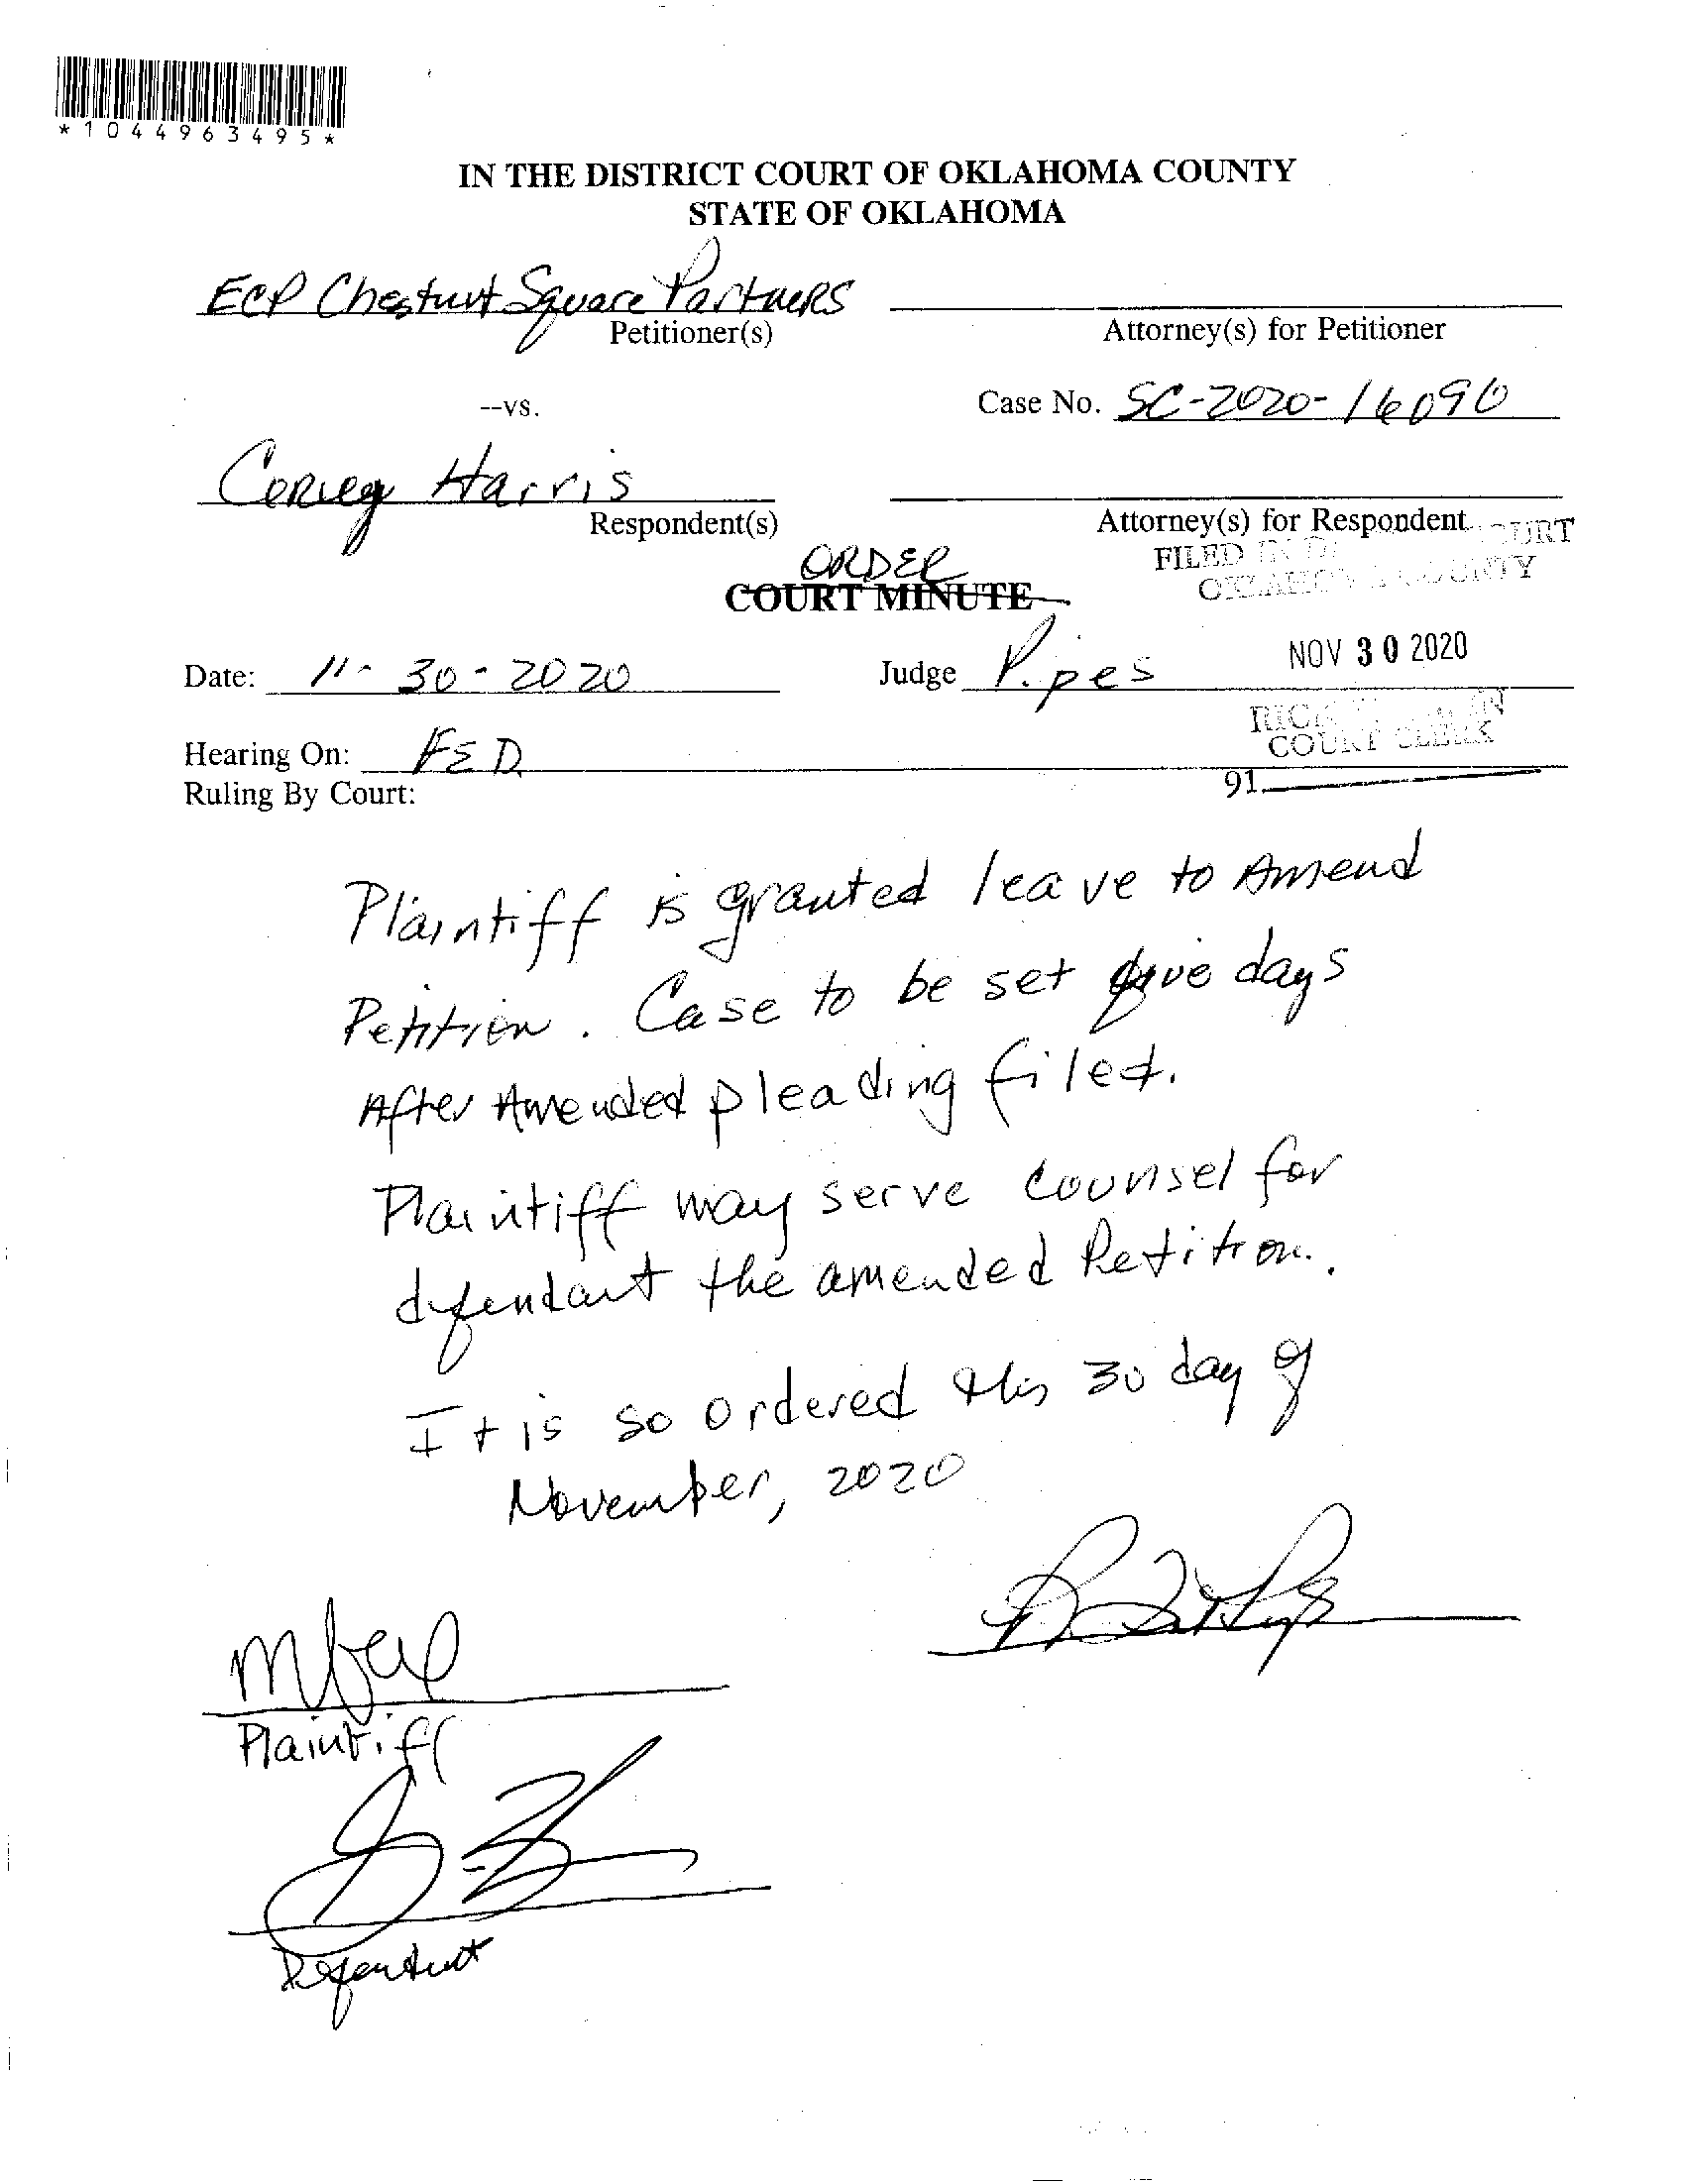 *1044963495*
IN THE DISTRICT COURT OF OKLAHOMA COUNTY
STATE OF OKLAHOMA
ECP Chestnut Square Partners
Petitioner(s)
Attorney(s) for Petitioner
--vs.
Case No. SC-2020-16090
Harris
Respondent(s)
Attorney(s) for Respondent
FILED IN COURT
OKLAHOMA COUNTY
ORDER
COURT MINUTE
Date: 11-30-2020
Judge Pipes
NOV 30 2020
COURT CLERK
Hearing On: FED
91
Ruling By Court:
Plaintiff is granted leave to Amend
Petition. Case to be set five days
After Amended pleading filed.
Plaintiff may serve counsel for
defendant the amended Petition.
It is so ordered this 30 day of
November, 2020
Plaintiff
Defendant